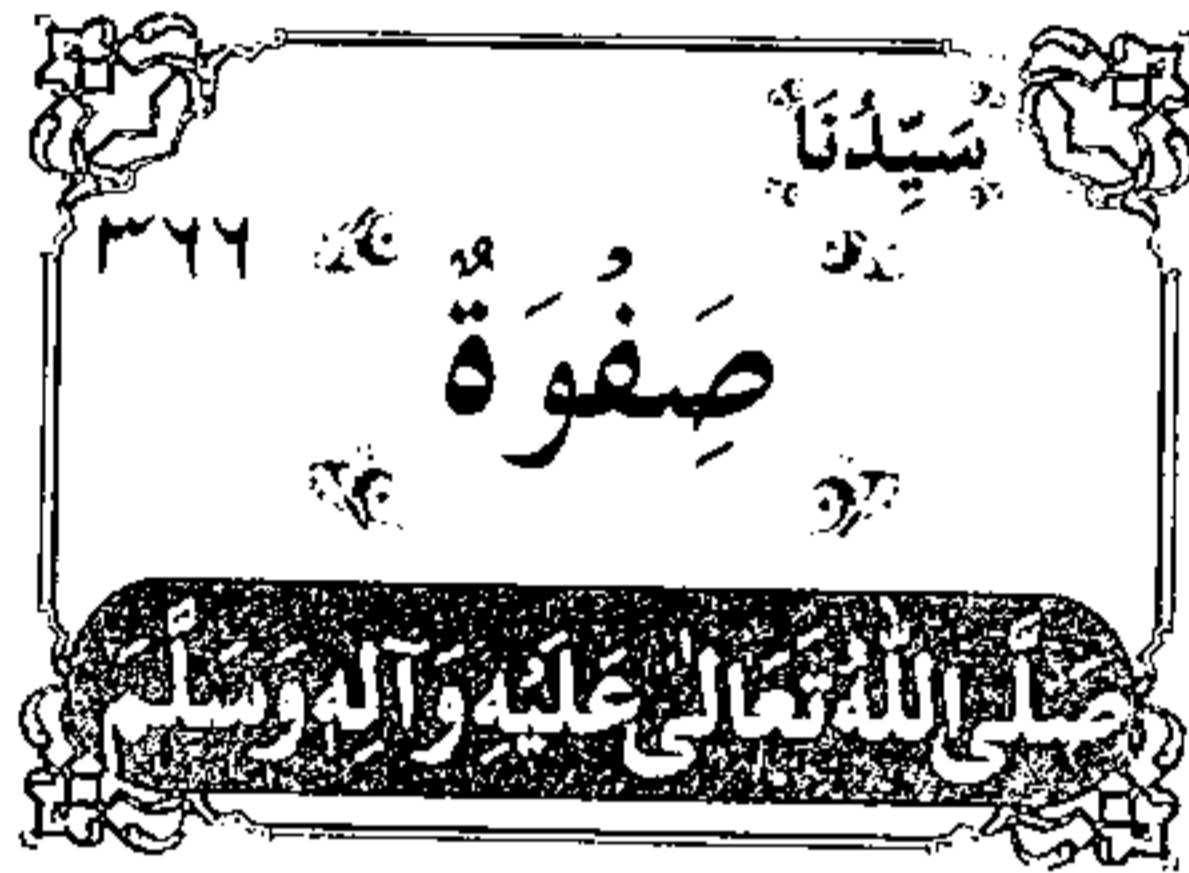 سَيِّدُنَا
٣٦٦
صَِفْوَةٌ
صَلَّى اللهُ تَعَالىٰ عَلَيْهِ وَآلِهِ وَسَلَّمَ